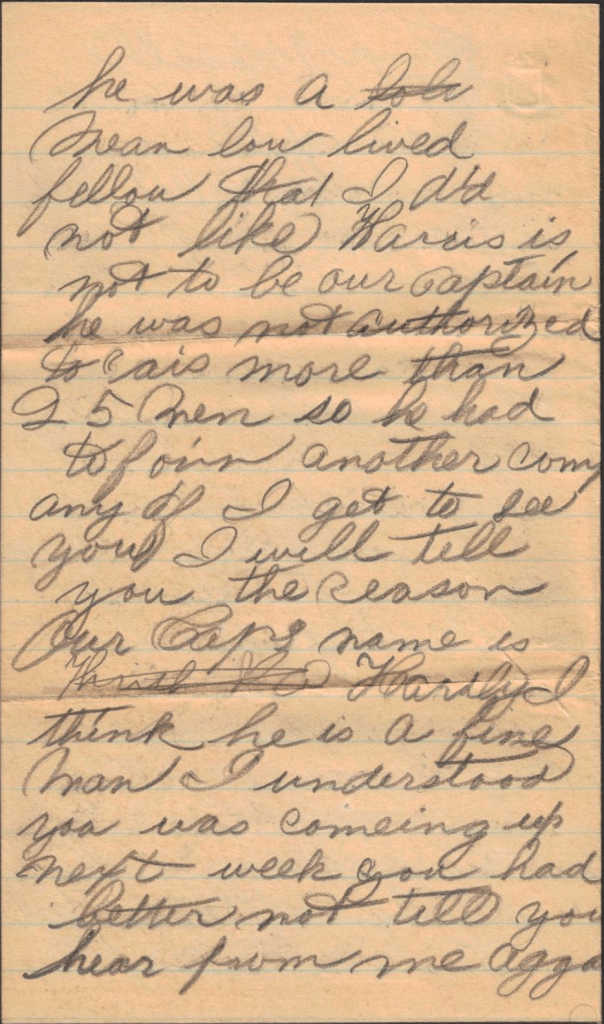 he was a
mean low lived
fellow that I did
not like Harris is
not to be our captain
he was not authorized
to rais more than
25 men so he had
to join another comp
any if I get to see
you I will tell
you the reason
Our Caps name is
Hardly I
think he is a fine
man I understood
you was comeing up
next week you had
better not till you
hear from me agga